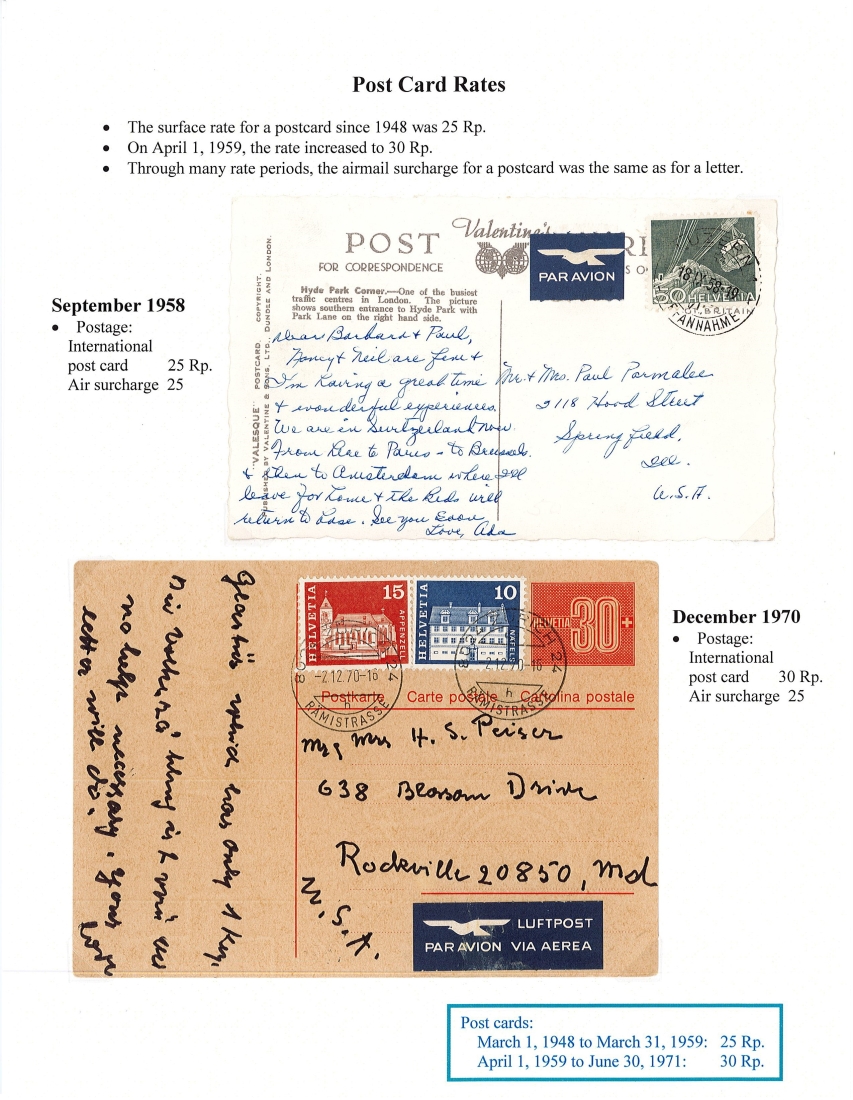 Post Card Rates
• The surface rate for a postcard since 1948 was 25 Rp.
• On April 1, 1959, the rate increased to 30 Rp.
• Through many rate periods, the airmail surcharge for a postcard was the same as for a letter.
September 1958
• Postage:
International
post card 25 Rp.
Air surcharge 25
POST
FOR CORRESPONDENCE
Valentine's
PAR AVION
50 HELVETIA
ANNAHME
Hyde Park Corner.—One of the busiest
traffic centres in London. The picture
shows southern entrance to Hyde Park with
Park Lane on the right hand side.
"VALESQUE" POSTCARD. COPYRIGHT.
PUBLISHED BY VALENTINE & SONS, LTD., DUNDEE AND LONDON.
Dear Barbara & Paul,
Nancy & Neil are fine &
I'm having a great time
& wonderful experiences.
We are in Switzerland now.
From here to Paris - to Brussels
& then to Amsterdam where I'll
leave for home & the kids will
return to base. See you soon
Love, Ada
Mr. & Mrs. Paul Parmalee
2118 Hood Street
Springfield,
Ill.
U.S.A.
December 1970
• Postage:
International
post card 30 Rp.
Air surcharge 25
HELVETIA 15 APPENZELL
HELVETIA 10 NÄFELS
HELVETIA 30 +
-2.12.70-16
RÄMISTRASSE
-2.12.70-16
RÄMISTRASSE
Postkarte Carte postale Cartolina postale
Mrs H. S. Peiser
638 Blossom Drive
Rockville 20850, Md
U.S.A.
LUFTPOST
PAR AVION VIA AEREA
only 1 kg.
no help necessary. your
letter will do.
Post cards:
March 1, 1948 to March 31, 1959: 25 Rp.
April 1, 1959 to June 30, 1971: 30 Rp.